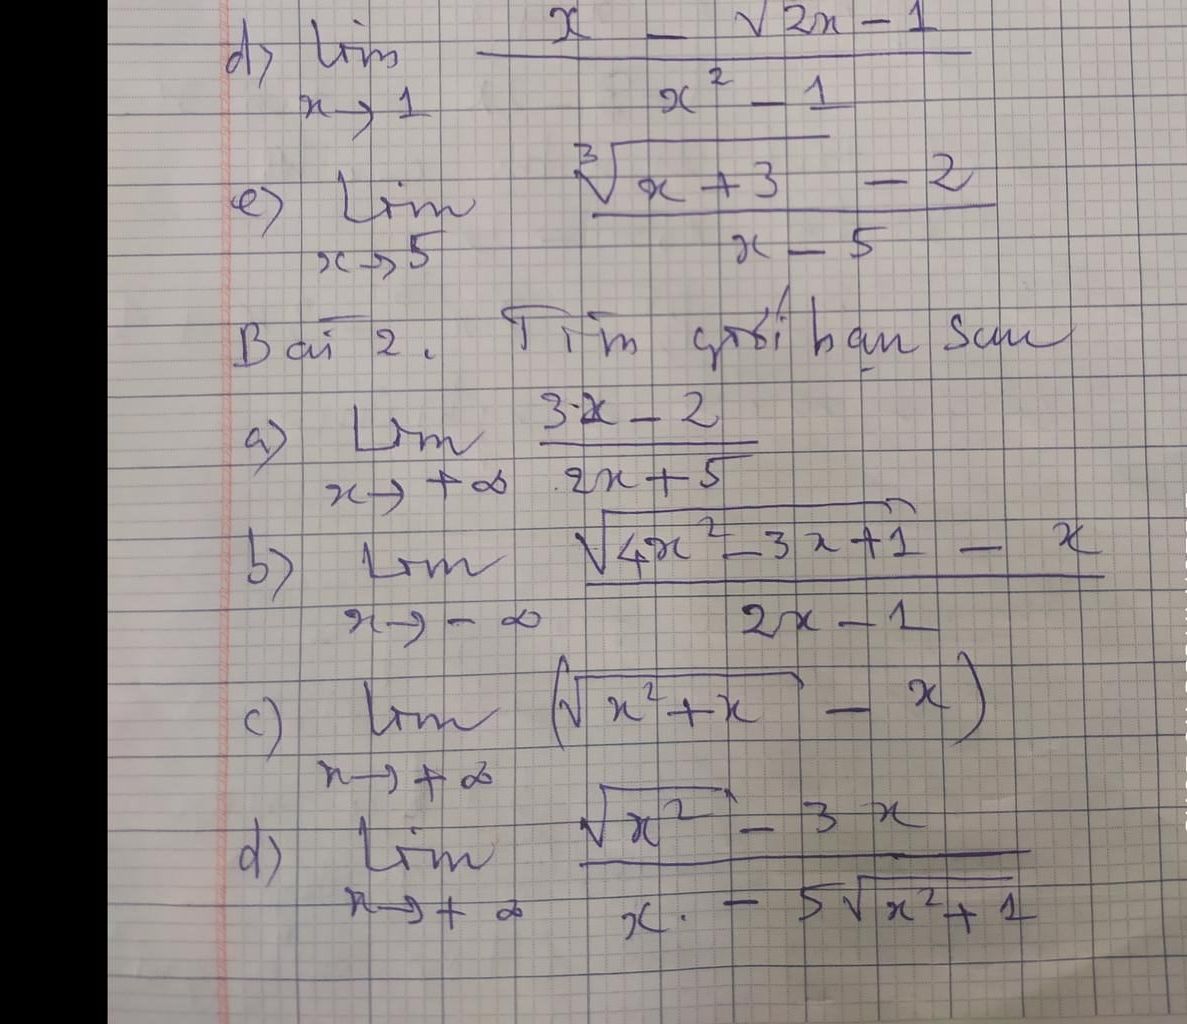 d) lim x→1 (x - √2x - 1)/(x² - 1)
e) Lim x→5 (∛(x + 3) - 2)/(x - 5)
Bài 2. Tìm giới hạn sau
a) Lim x→+∞ (3x - 2)/(2x + 5)
b) Lim x→-∞ (√(4x² - 3x + 1) - x)/(2x - 1)
c) Lim x→+∞ (√(x² + x) - x)
d) Lim x→+∞ (√(x²) - 3x)/(x - 5√(x² + 1))